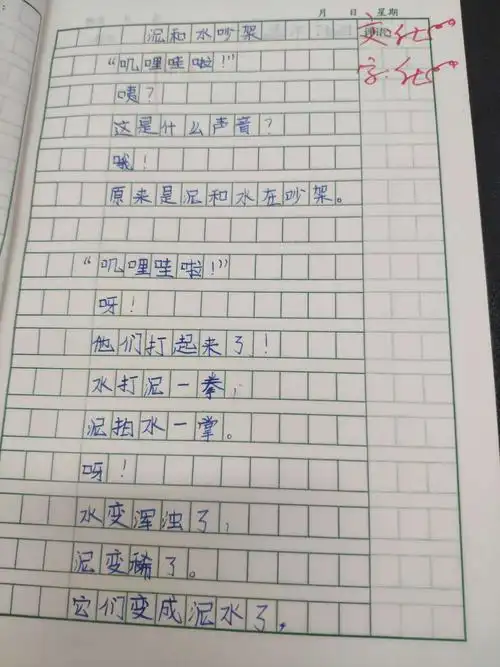 月 日 星期
泥和水吵架
“叽哩哇啦！”
咦？
这是什么声音？
哦！
原来是泥和水在吵架。
“叽哩哇啦！”
呀！
他们打起来了！
水打泥一拳，
泥拍水一掌。
呀！
水变浑浊了，
泥变稀了。
它们变成泥水了，